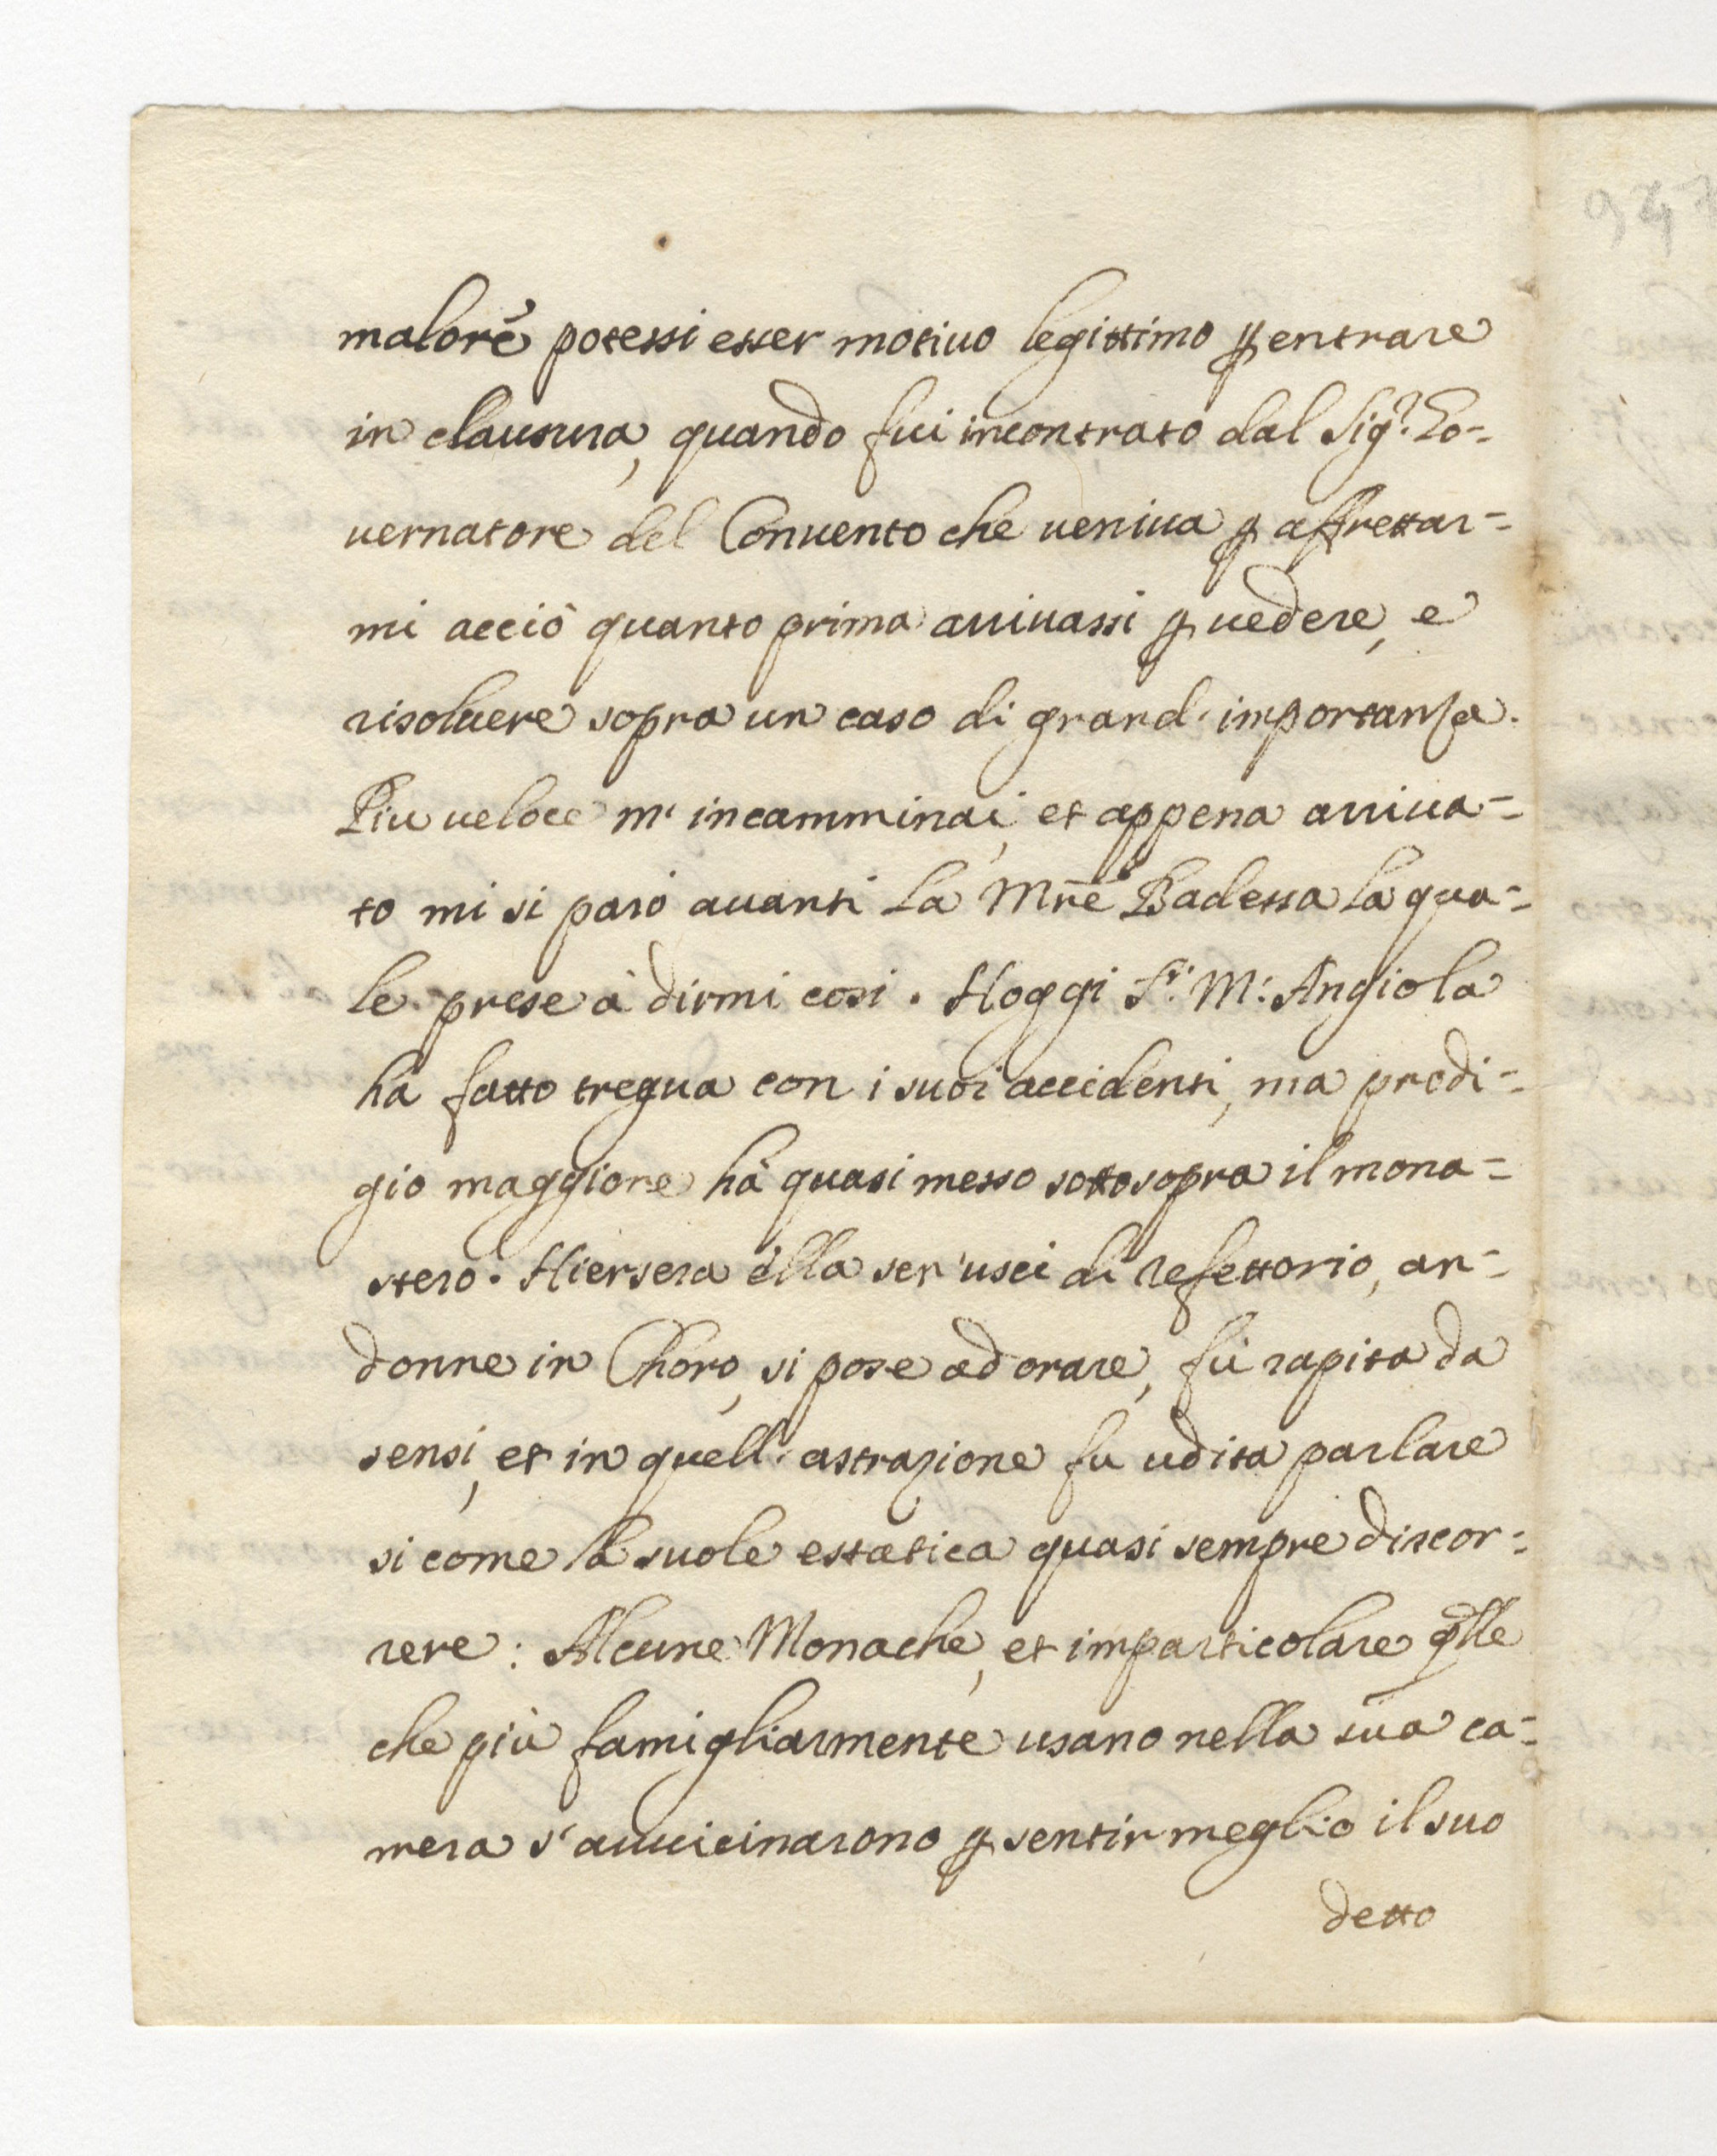 malorè potessi esser motiuo legittimo ꝑ entrare
in clausura, quando fui incontrato dal Sig.r Go-
uernatore del Conuento che ueniua ꝑ affrettar-
mi acciò quanto prima arriuassi ꝑ uedere, e
risoluere sopra un caso di grand' importanza.
Piu ueloce m' incamminai, et appena arriua-
to mi si parò auanti la Mrē Badessa la qua-
le prese à dirmi cosi. Hoggi S.r M: Angiola
hà fatto tregua con i suoi accidenti, ma prodi-
gio maggiore hà quasi messo sottosopra il mona-
stero. Hiersera ella sen' usci di refettorio, an-
donne in Choro, si pose ad orare, fù rapita da
sensi, et in quell' astrazione fu udita parlare
si come la suole estatica quasi sempre discor-
rere: Alcune Monache, et imparticolare qlle
che più famigliarmente usano nella sua ca-
mera s' auuicinarono ꝑ sentir meglio il suo
detto